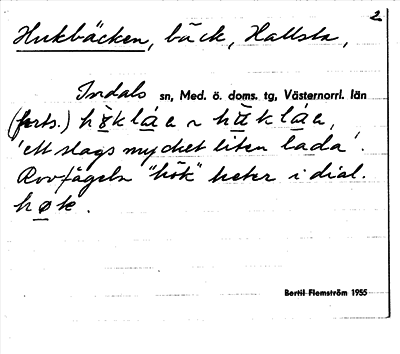 2
Hukbäcken, bäck, Hallsta,
Indals sn, Med. ö. doms. tg, Västernorrl. län
(forts.) hö̱klá̱a ~ hä̱klá̱a,
'ett slags mycket liten lada'.
Rovfågeln "hök" heter i dial.
hø̱k.
Bertil Flemström 1955